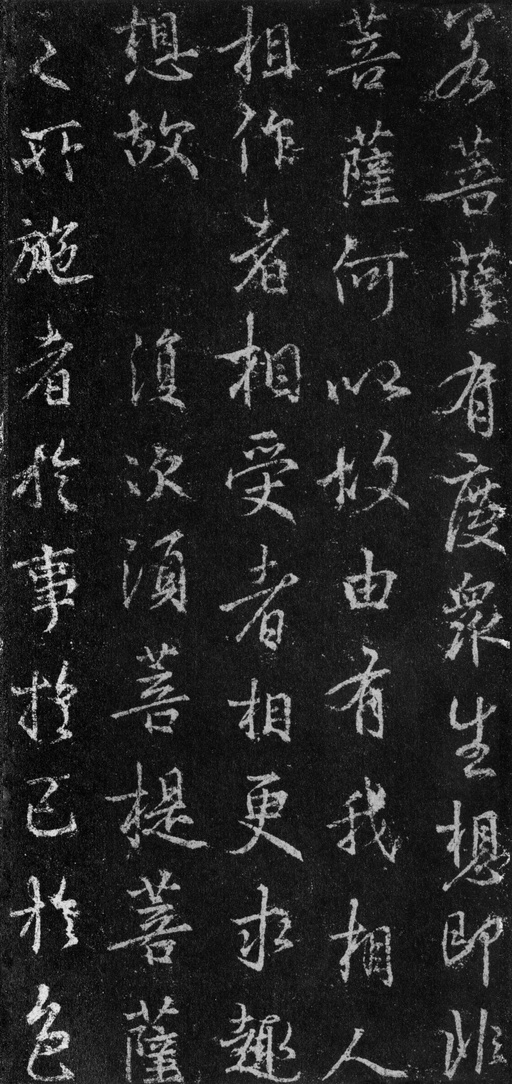 若菩薩有度衆生想即非
菩薩何以故由有我相人
相作者相受者相更求趣
想故 須次須菩提菩薩
之所施者於事於己於色